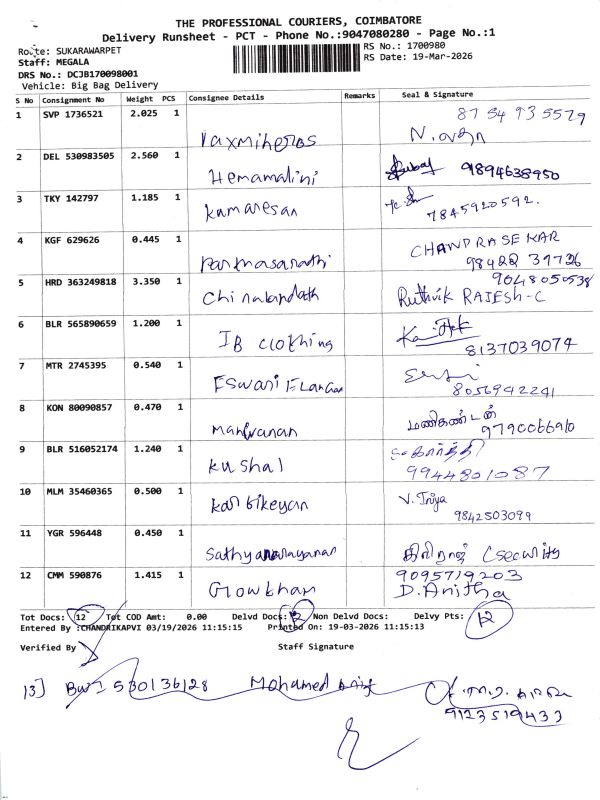 THE PROFESSIONAL COURIERS, COIMBATORE
Delivery Runsheet - PCT - Phone No.:9047080280 - Page No.:1
Route: SUKARAWARPET
RS No.: 1700980
Staff: MEGALA
RS Date: 19-Mar-2026
DRS No.: DCJB170098001
Vehicle: Big Bag Delivery
S No Consignment No Weight PCS Consignee Details Remarks Seal & Signature
1 SVP 1736521 2.025 1 87 54 935579
Laxmiheros
2 DEL 530983505 2.560 1 9894638950
Hemamalini
3 TKY 142797 1.185 1
Kamaresan 7845920592.
4 KGF 629626 0.445 1 CHANDRASEKAR
Parthasarathi 98422 39726
5 HRD 363249818 3.350 1 9048050538
Ruthvik RAJESH-C
6 BLR 565890659 1.200 1
IB Clothing 8137039074
7 MTR 2745395 0.540 1
ESwari Elangan 8056942241
8 KON 80090857 0.470 1 மணிகண்டன்
9790066910
9 BLR 516052174 1.240 1
Kushal 9944801087
10 MLM 35460365 0.500 1 V. Priya
Karthikeyan 9842503099
11 YGR 596448 0.450 1
Sathyanarayanan (Security
12 CMM 590876 1.415 1 9095719203
D. Anitha
Tot Docs: 12 Tot COD Amt: 0.00 Delvd Docs: 12 Non Delvd Docs: Delvy Pts: 12
Entered By :CHANDRIKAPVI 03/19/2026 11:15:15 Printed On: 19-03-2026 11:15:13
Verified By Staff Signature
13] 530136128 Mohamed
9123519433